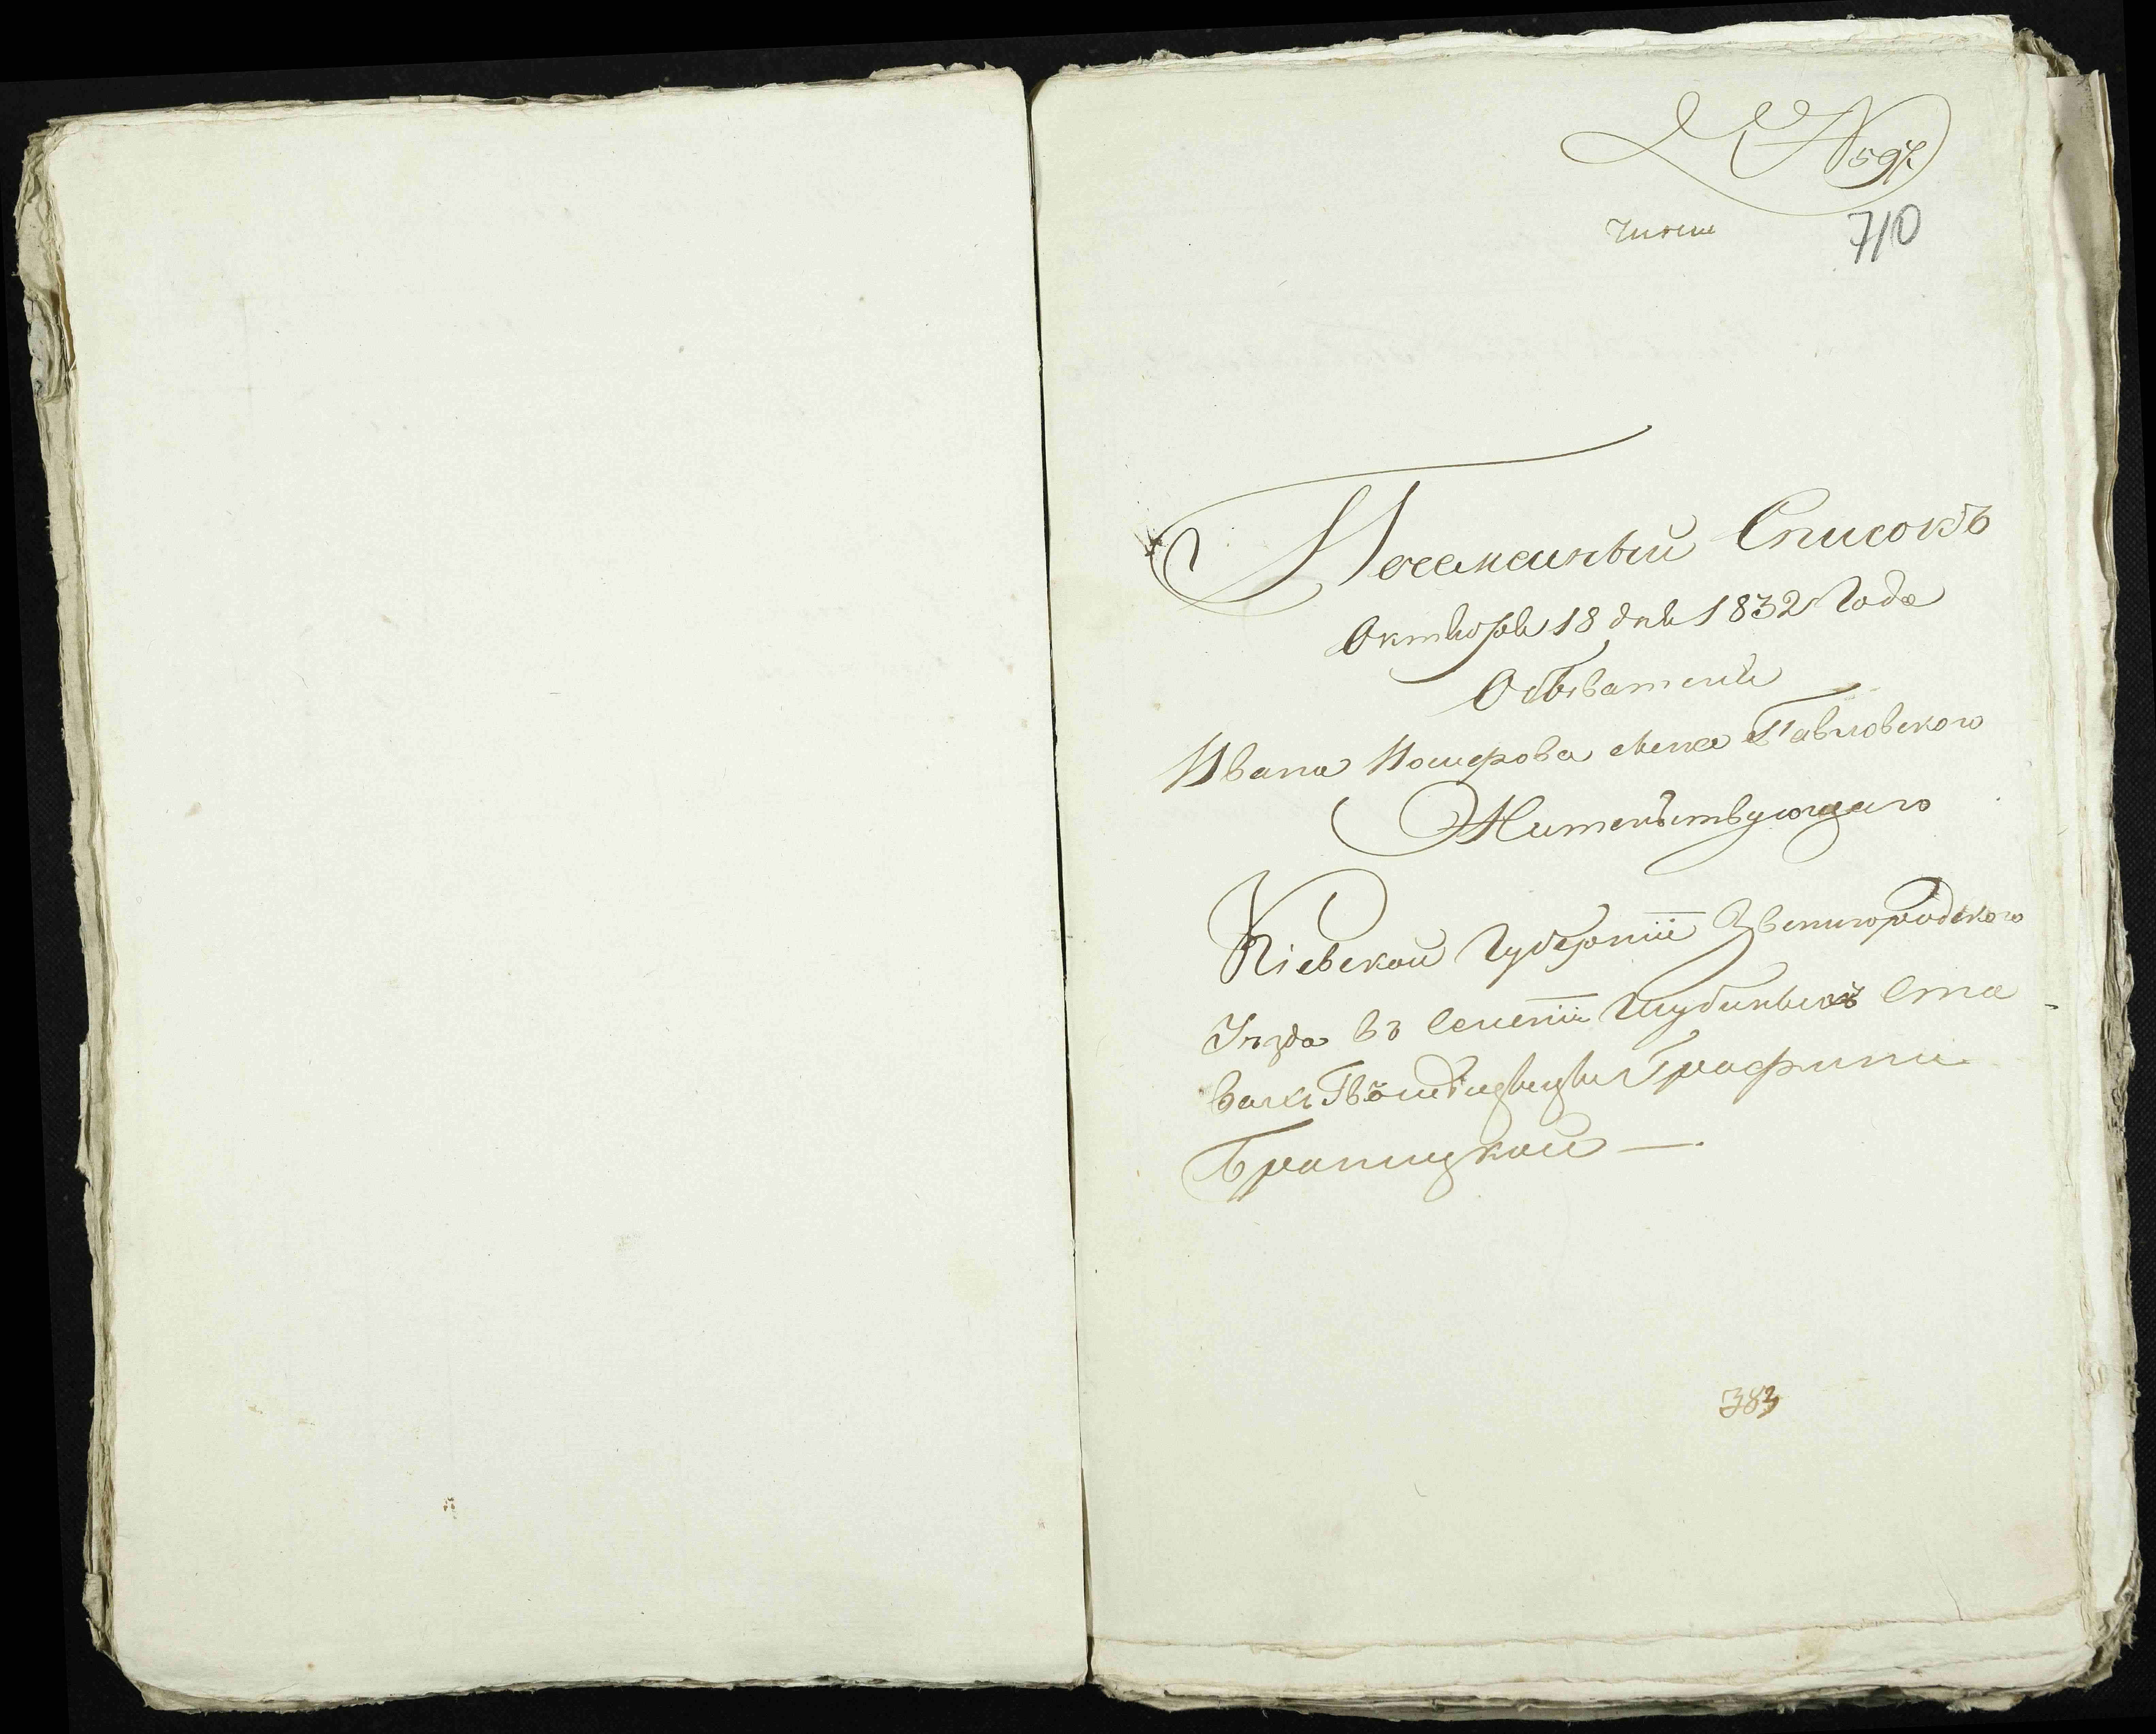 № 597
710
Посемейный Списокъ
Октября 18 дня 1832 Года
Обывателя
Ивана сына Павловского
Жительствующаго
Кіевской Губерніи Звенигородского
Уѣзда въ Селеніи Шубиныхъ Ста
Графини
Браницкой —
383